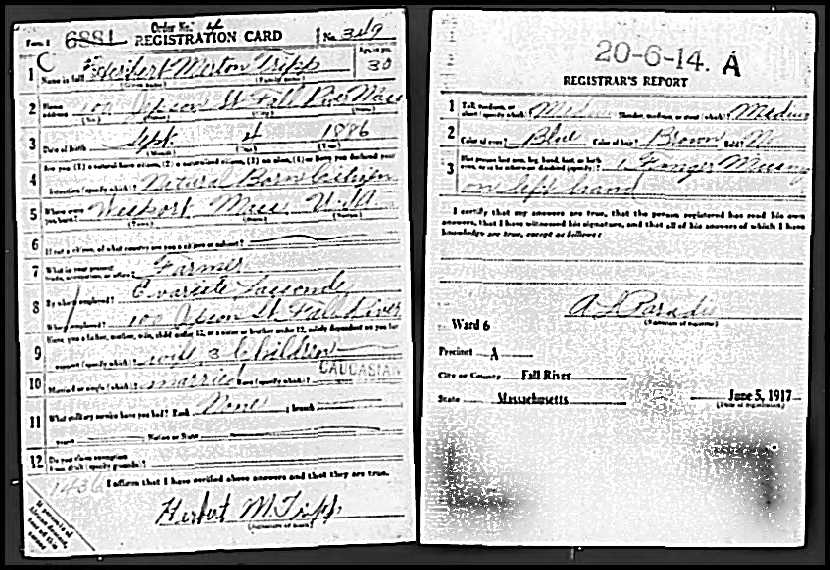 Form 1 6881 Order No. 4 REGISTRATION CARD No. 349
Age, in yrs. 30
1 Name in full Herbert Merton Tripp
(Given name) (Family name)
2 Home address 100 Jepson St Fall River Mass
(No.) (Street) (City) (State)
3 Date of birth Sept 4 1886
(Month) (Day) (Year)
4 Are you (1) a natural-born citizen, (2) a naturalized citizen, (3) an alien, (4) or have you declared your
intention (specify which)? Natural Born Citizen
5 Where were you born? Westport Mass USA
(Town) (State) (Nation)
6 If not a citizen, of what country are you a citizen or subject?
7 What is your present trade, occupation, or office? Farmer
8 By whom employed? Evariste
Where employed? 100 Jepson St Fall River
9 Have you a father, mother, wife, child under 12, or a sister or brother under 12, solely dependent on you for
support (specify which)? wife 3 children
10 Married or single (which)? married Race (specify which)? CAUCASIAN
11 What military service have you had? Rank None ; branch
years Nation or State
12 Do you claim exemption from draft (specify grounds)?
1436 I affirm that I have verified above answers and that they are true.
Herbert M. Tripp
(Signature or mark)
If person is of African descent, tear off this corner
20-6-14. A
REGISTRAR'S REPORT
1 Tall, medium, or short (specify which)? Medium Slender, medium, or stout (which)? Medium
2 Color of eyes? Blue Color of hair? Brown Bald? No
3 Has person lost arm, leg, hand, foot, or both eyes, or is he otherwise disabled (specify)? 1 Finger Missing
on left hand
I certify that my answers are true, that the person registered has read his own
answers, that I have witnessed his signature, and that all of his answers of which I have
knowledge are true, except as follows:
A L Paradis
(Signature of registrar)
Ward 6
Precinct A
City or County Fall River
State Massachusetts June 5, 1917
(Date of registration)